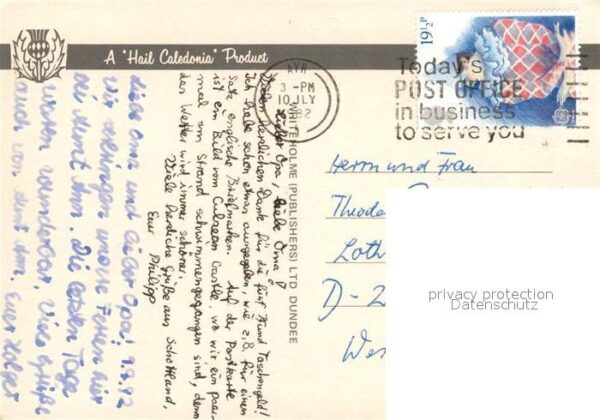 A "Hail Caledonia" Product
19½P
AYR
3 -PM
10 JLY
1982
Today's
POST OFFICE
in business
to serve you
WHITEHOLME (PUBLISHERS) LTD DUNDEE
Lieber Opa, liebe Oma,
Vielen herzlichen Dank für die fünf Pfund Taschengeld!
Ich habe schon etwas ausgegeben, wie z.B. für einen
Satz englische Briefmarken. Auf der Postkarte
ist ein Bild vom Culzean Castle, wo wir ein paar-
mal am Strand schwimmengegangen sind, denn
das Wetter wird immer schöner.
Viele herzliche Grüße aus Schottland,
Euer Philipp
Liebe Oma und lieber Opa! 9.7.82
Wir verbringen unsere Ferien hier
bei Aunt Ann. Die letzten Tage
waren wunderbar, Viele Grüße
auch von Aunt Ann, Euer Holger
Herrn und Frau
Theodo
Loth
D-2
Wes
privacy protection
Datenschutz